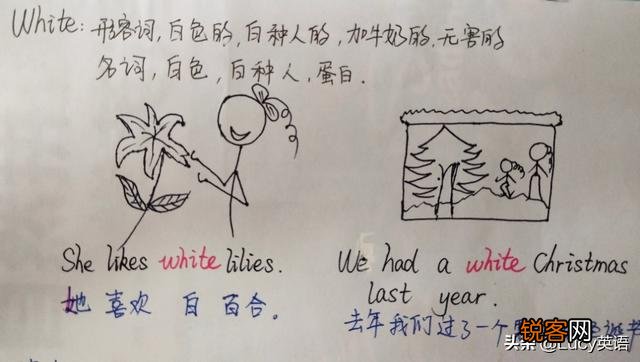 White: 形容词,白色的,白种人的,加牛奶的,无害的
名词,白色,白种人,蛋白.
She likes white lilies.
她 喜欢 白 百合。
We had a white Christmas
last year.
去年我们过了一个
头条 @Lucy英语
锐客网